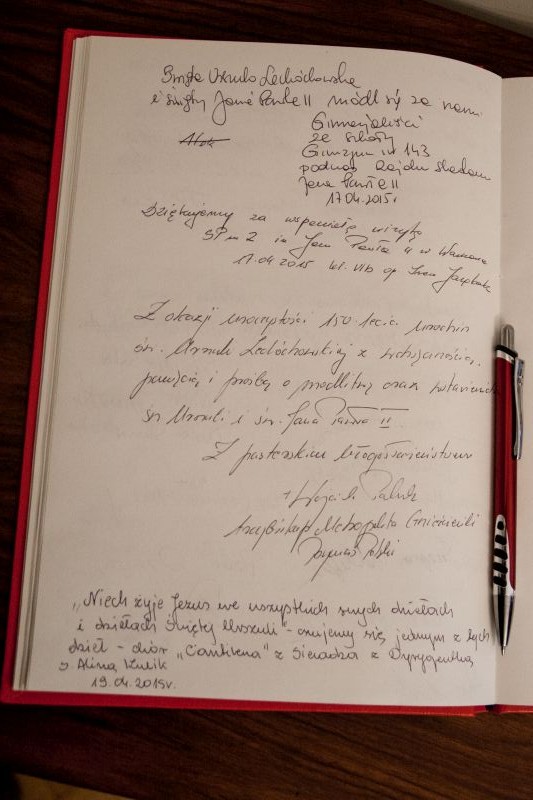 Święta Urszulo Ledóchowska
i święty Janie Pawle II módl się za nami
Gimnazjaliści
ze szkoły
Gimzjum nr 143
podczas Rajdu śladami
Jana Pawła II
17.04.2015r
Dziękujemy za wspaniałą wizytę
SP nr 2 im Jana Pawła II w Warszawie
17.04.2015 kl. VIb op
Z okazji uroczystości 150-lecia urodzin
św. Urszuli Ledóchowskiej z wdzięcznością,
pamięcią i prośbą o modlitwę oraz
św. Urszuli i św. Jana Pawła II
Z pasterskim błogosławieństwem
+ Wojciech Polak
Arcybiskup Metropolita Gnieźnieński
Prymas Polski
„Niech żyje Jezus we wszystkich swych dziełach
i dziełach Świętej Urszuli" - czujemy się jednym z tych
dzieł - chór „Cantilena" z Sieradza z Dyrygentką
s Aliną Kulik
19.04.2015r.